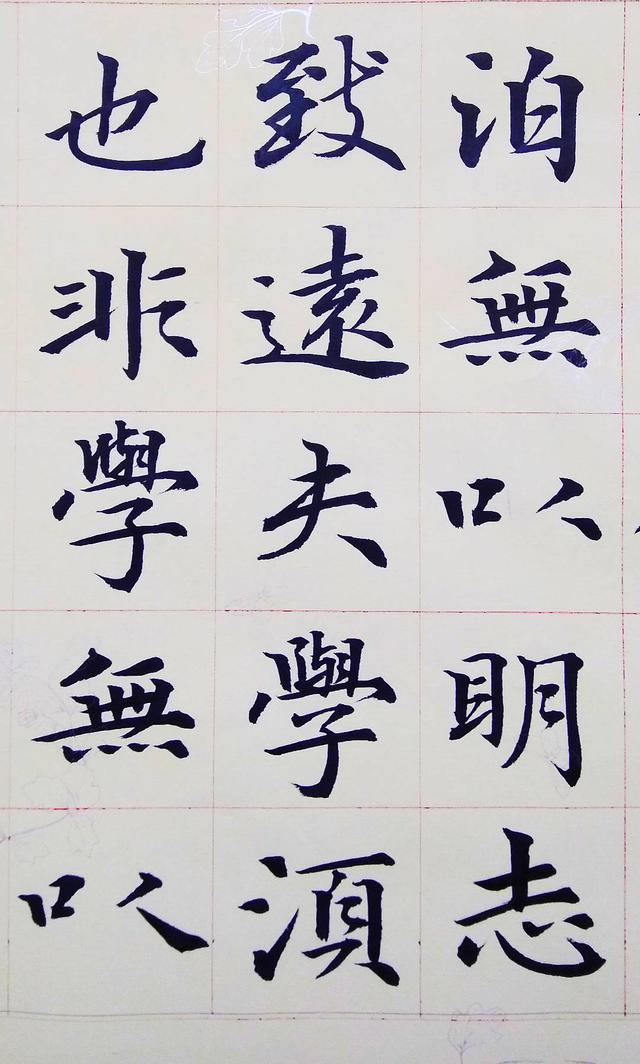 泊無以明志
致遠夫學湏
也非學無以